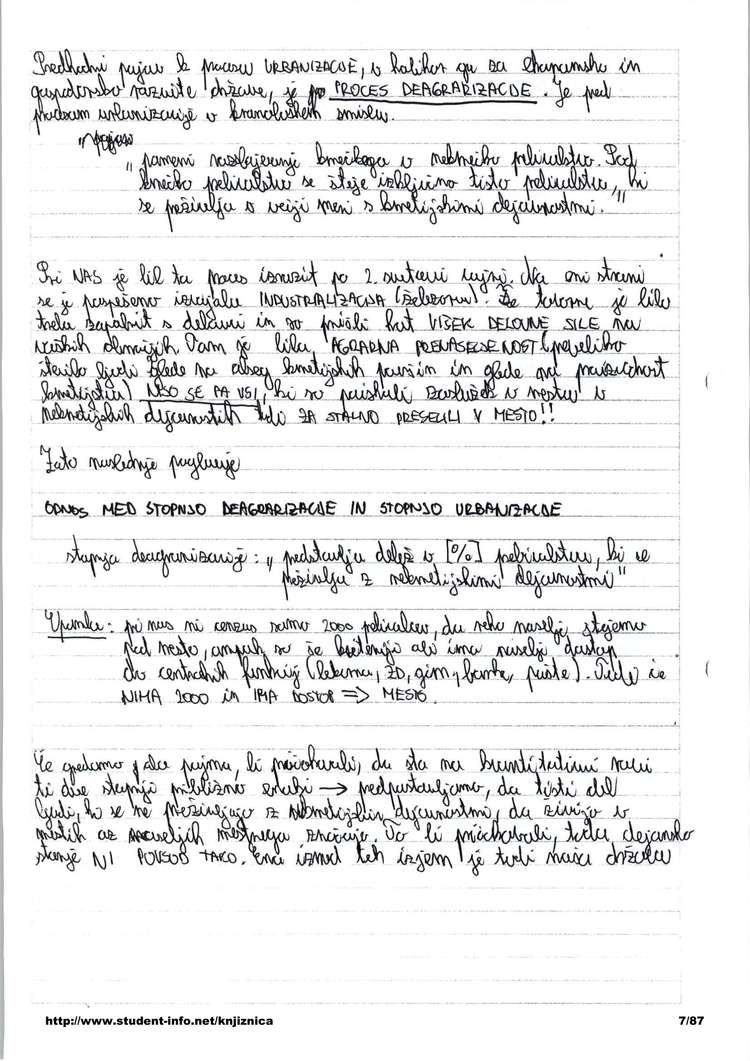 Predhodni pojav k procesu URBANIZACIJE, v kolikor gre za ekonomsko in
gospodarsko razvite države, je PROCES DEAGRARIZACIJE. Je pred
procesom urbanizacije v kronološkem smislu.
"pojav
"pomeni razslojevanje kmečkega v nekmečko prebivalstvo. Pod
kmečko prebivalstvo se šteje izključno tisto prebivalstvo, ki
se preživlja v večji meri s kmetijskimi dejavnostmi."
Pri NAS je bil ta proces izrazit po 2. svetovni vojni. Na eni strani
se je pospešeno izvajala INDUSTRIALIZACIJA (železarn). Te tovarne je bilo
treba zapolnit s delavci in so prišli kot VIŠEK DELOVNE SILE na
vaških območjih. Tam je bila "AGRARNA PRENASELJENOST" (preveliko
število ljudi glede na obseg kmetijskih površin in glede na
kmetijstva) NISO SE PA VSI, ki so poiskali zaslužek v mestu v
nekmetijskih dejavnostih tudi ZA STALNO PRESELILI V MESTO!!
Zato naslednje poglavje
ODNOS MED STOPNJO DEAGRARIZACIJE IN STOPNJO URBANIZACIJE
stopnja deagrarizacije: "predstavlja delež v [%] prebivalstva, ki se
preživlja z nekmetijskimi dejavnostmi"
Opomba: pri nas ni cenzus samo 2000 prebivalcev, da neko naselje štejemo
pod mesto, ampak so še kriteriji ali ima naselje dostop
do centralnih funkcij (lekarna, ZD, gimn, banka, pošte). Tudi če
NIMA 2000 in IMA DOSTOP => MESTO.
Če gledamo oba pojma, bi pričakovali, da sta na kvantitativni ravni
ti dve stopnji približno enaki → predpostavljamo, da tisti del
ljudi, ko se ne preživljajo z nekmetijskim dejavnostmi, da živijo v
mestih oz naseljih mestnega značaja. To bi pričakovali, toda dejansko
stanje NI POVSOD TAKO. Ena izmed teh izjem je tudi naša država
http://www.student-info.net/knjiznica
7/87